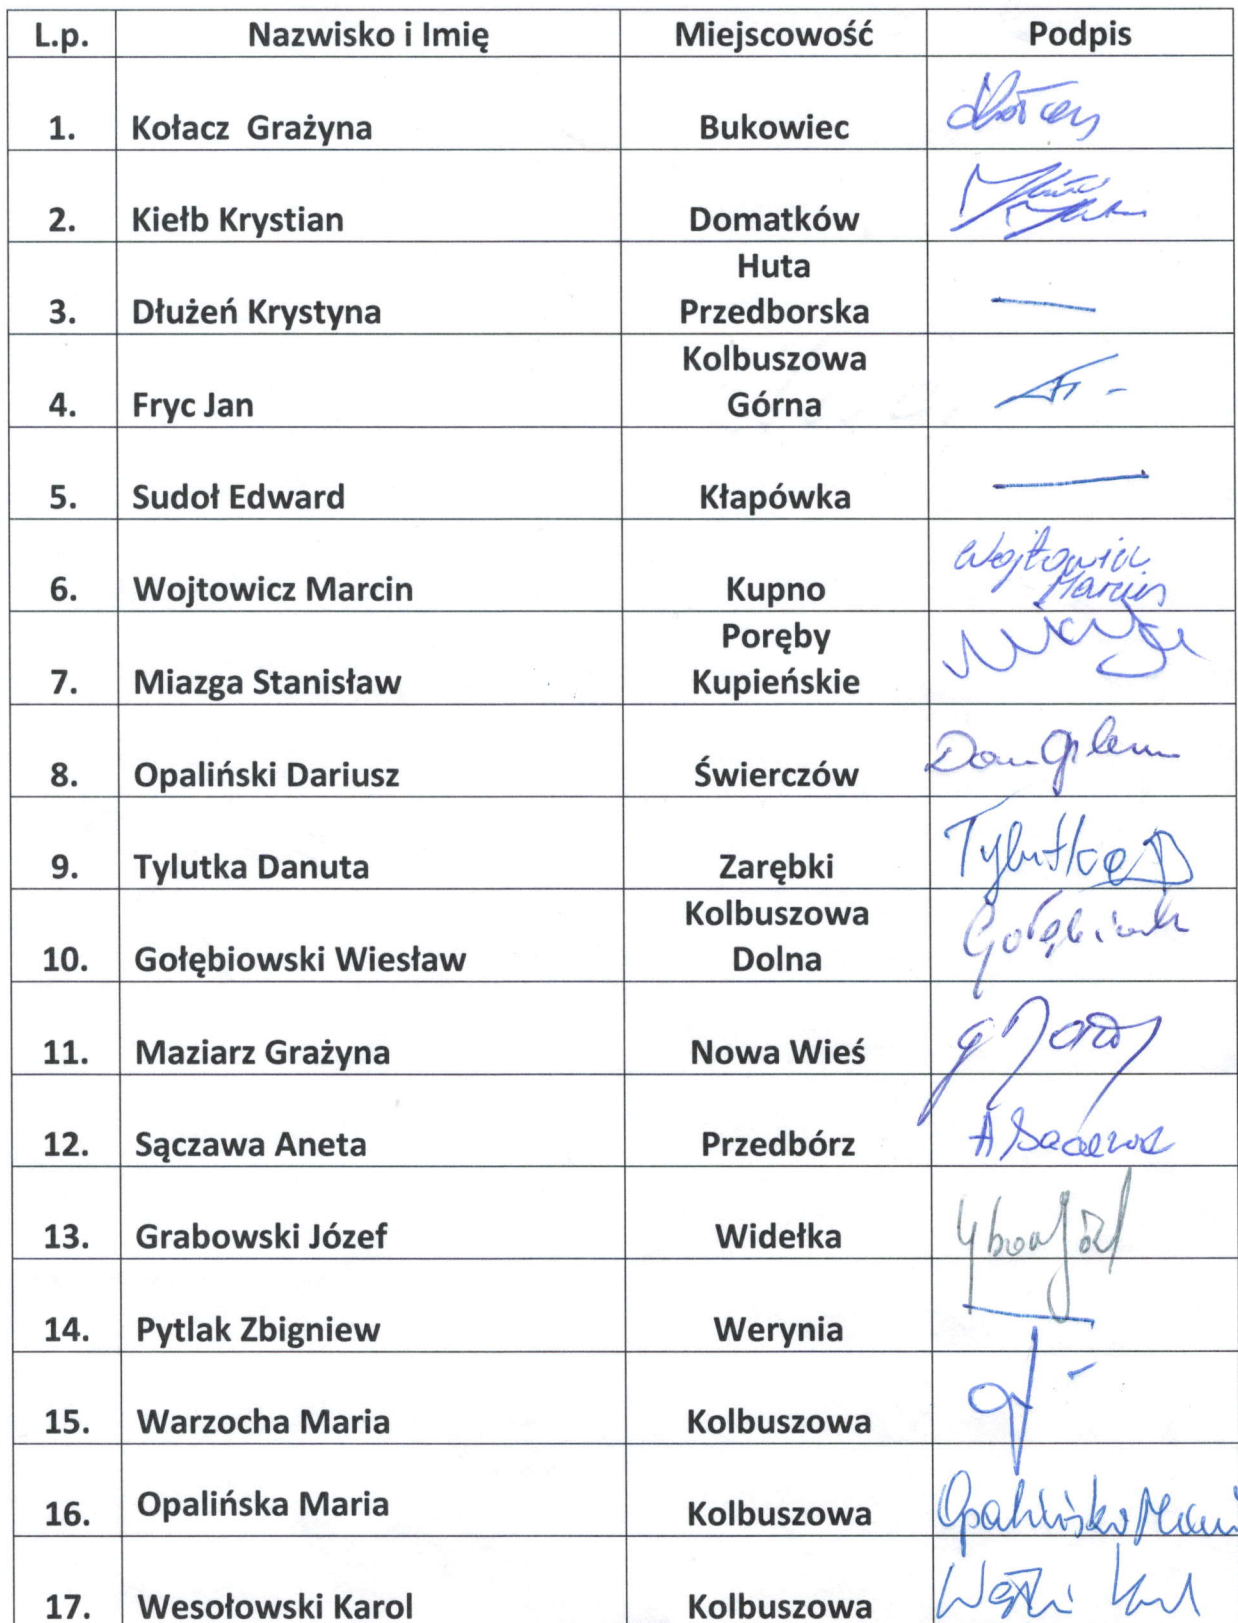 L.p. Nazwisko i Imię Miejscowość Podpis
1. Kołacz Grażyna Bukowiec
2. Kiełb Krystian Domatków
Huta
3. Dłużeń Krystyna Przedborska —
Kolbuszowa
4. Fryc Jan Górna
5. Sudoł Edward Kłapówka —
Wojtowicz
6. Wojtowicz Marcin Kupno Marcin
Poręby
7. Miazga Stanisław Kupieńskie
8. Opaliński Dariusz Świerczów
9. Tylutka Danuta Zarębki Tylutka D
Kolbuszowa
10. Gołębiowski Wiesław Dolna
11. Maziarz Grażyna Nowa Wieś
12. Sączawa Aneta Przedbórz
13. Grabowski Józef Widełka
14. Pytlak Zbigniew Werynia —
15. Warzocha Maria Kolbuszowa
16. Opalińska Maria Kolbuszowa Opalińska Maria
17. Wesołowski Karol Kolbuszowa